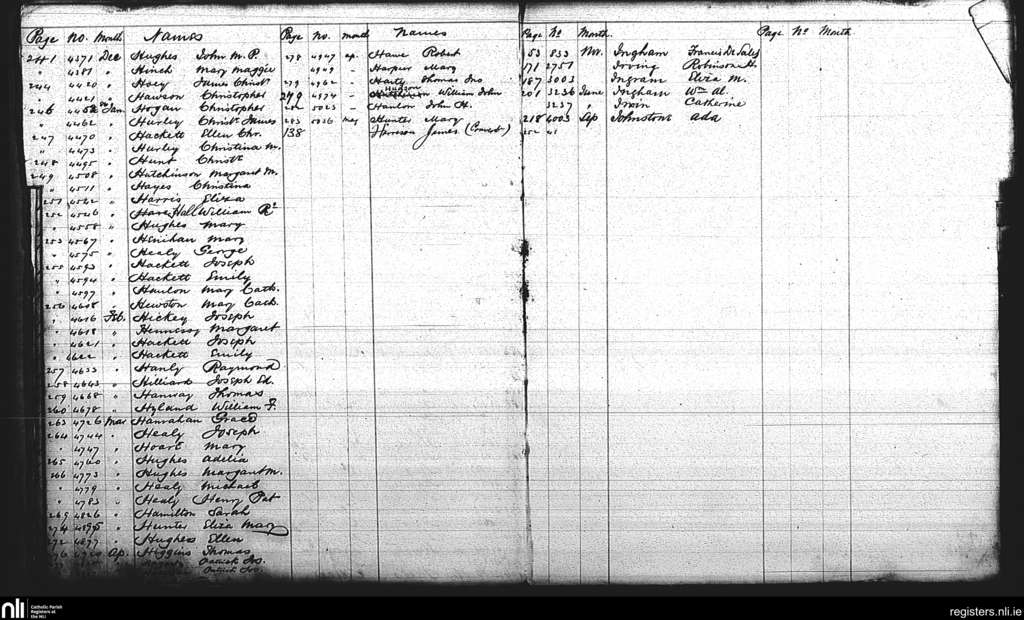 Page No. Month Names
241 4371 Dec Hughes John M. P.
" 4381 " Hinch Mary Maggie
244 4420 " Hoey James Christr
" 4421 " Hawson Christopher
246 4456 Jan Hogan Christopher
" 4462 " Hurley Christr James
247 4470 " Hackett Ellen Chr.
" 4473 " Hurley Christina M.
248 4495 " Hunt Christr
249 4508 " Hutchinson Margaret M.
" 4511 " Hayes Christina
251 4522 " Harris Eliza
252 4526 " Hare Hall William Rt
" 4558 " Hughes Mary
253 4567 " Henihan Mary
" 4575 " Healy George
255 4593 " Hackett Joseph
" 4594 " Hackett Emily
" 4597 " Hanlon Mary Cath.
256 4608 " Hewston Mary Cath.
" 4616 Feb. Hickey Joseph
" 4618 " Hennessy Margaret
" 4621 " Hackett Joseph
" 4622 " Hackett Emily
257 4633 " Hanly Raymond
258 4643 " Hilliard Joseph Ed.
259 4668 " Hanway Thomas
260 4678 " Hyland William F.
263 4726 Mar Hanrahan Grace
264 4744 " Healy Joseph
" 4747 " Hoare Mary
265 4760 " Hughes Adelia
266 4773 " Hughes Margaret M.
" 4779 " Healy Michael
" 4783 " Healy Henry Pat
269 4826 " Hamilton Sarah
274 4895 " Hunter Eliza Mary
272 4877 " Hughes Ellen
Ap. Higgins Thomas
Patrick Jos.
Patrick Jos.
Page No. Month Names
278 4947 Ap. Hawe Robert
4949 - Harper Mary
279 4962 - Harty Thomas Jno
Hudson
279 4974 - William John
282 5023 - Hanlon John H.
283 5036 May Hunter Mary
138 Harrison James (Convert)
Page No Month
53 853 Nov. Ingham Francis De Sales
171 2751 Irving Robinson H.
187 3003 Ingram Eliza M.
201 3236 June Ingham Wm Al.
3237 " Irwin Catherine
218 4003 Sep Johnstone Ada
252 41
Page No Month
nli Catholic Parish
Registers at
the NLI
registers.nli.ie